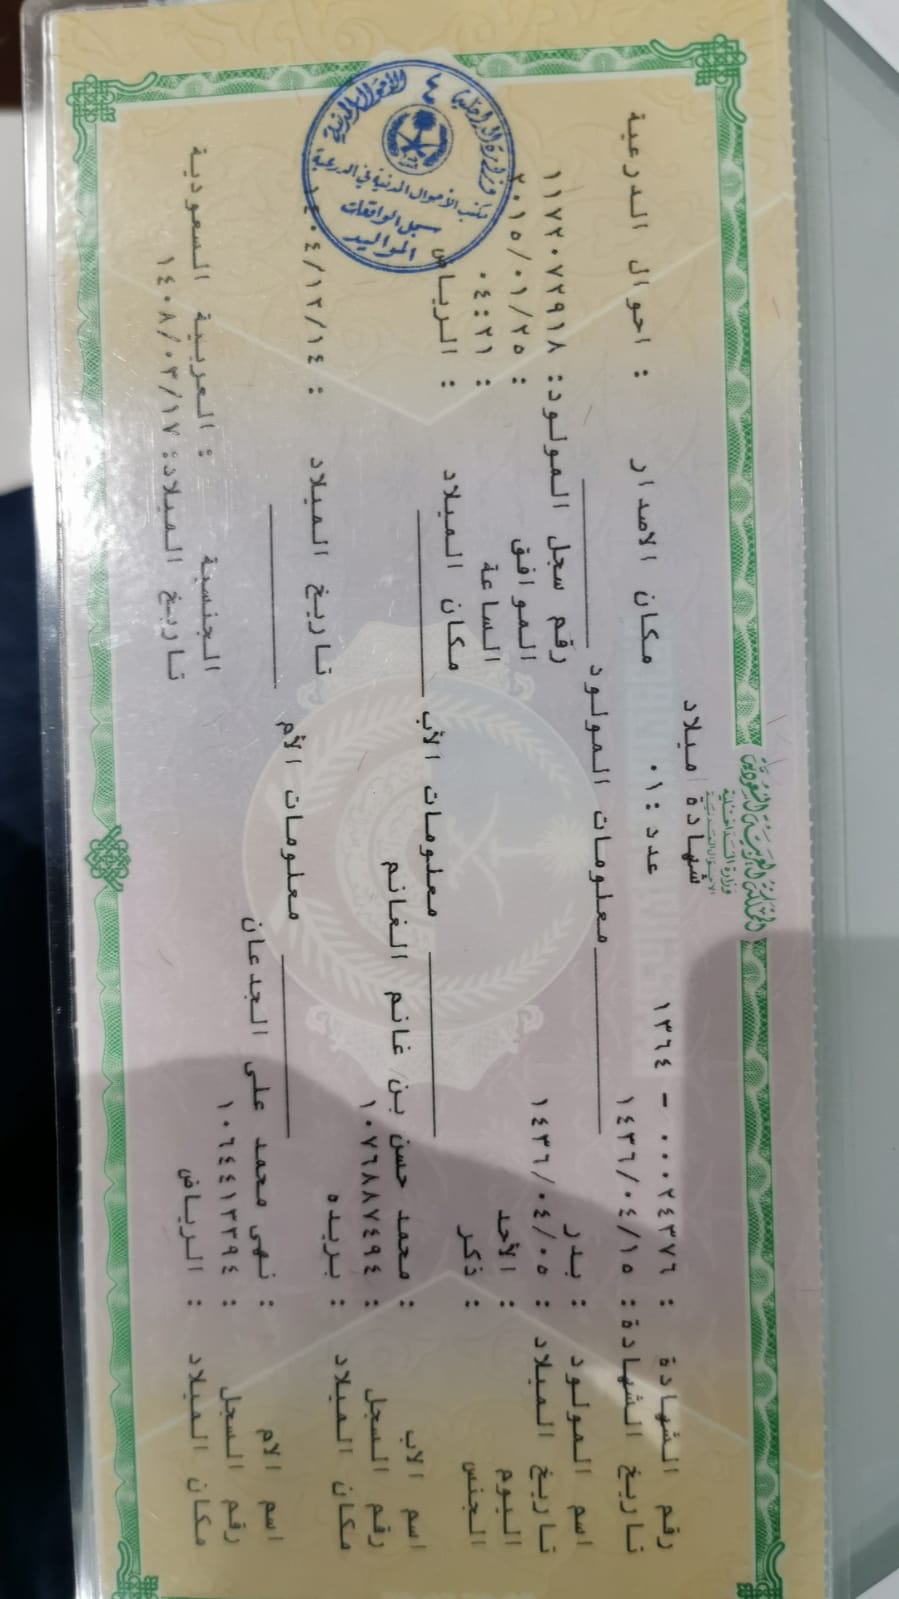 المملكة العربية السعودية
وزارة الداخلية
الأحوال المدنية
شهادة ميلاد
رقم الشهادة : ٠٠٠٢٤٣٧٦ - ١٣٦٤ عدد : ٠١ مكان الاصدار : احوال الدرعية
تاريخ الشهادة : ١٤٣٦/٠٤/١٥
معلومات المولود
اسم المولود : بدر رقم سجل المولود : ١١٧٢٠٧٢٩١٨
تاريخ الميلاد : ١٤٣٦/٠٤/٠٥ الموافق : ٢٠١٥/٠١/٢٥
اليوم : الأحد الساعة : ٠٤:٢١
الجنس : ذكر مكان الميلاد : الرياض
معلومات الأب
اسم الاب : محمد حسن بن غانم الغانم
رقم السجل : ١٠٧٦٨٨٧٤٩٤
مكان الميلاد : بريده تاريخ الميلاد : ١٤٠٤/١٢/١٤
معلومات الأم
اسم الام : نهى محمد على الجدعان
رقم السجل : ١٠٦٤٤١٣٣٩٤ الجنسية : العربية السعودية
مكان الميلاد : الرياض تاريخ الميلاد : ١٤٠٨/٠٣/١٧
وزارة الداخلية ٤ الأحوال المدنية
مكتب الأحوال المدنية في الدرعية
سجل الواقعات
المواليد